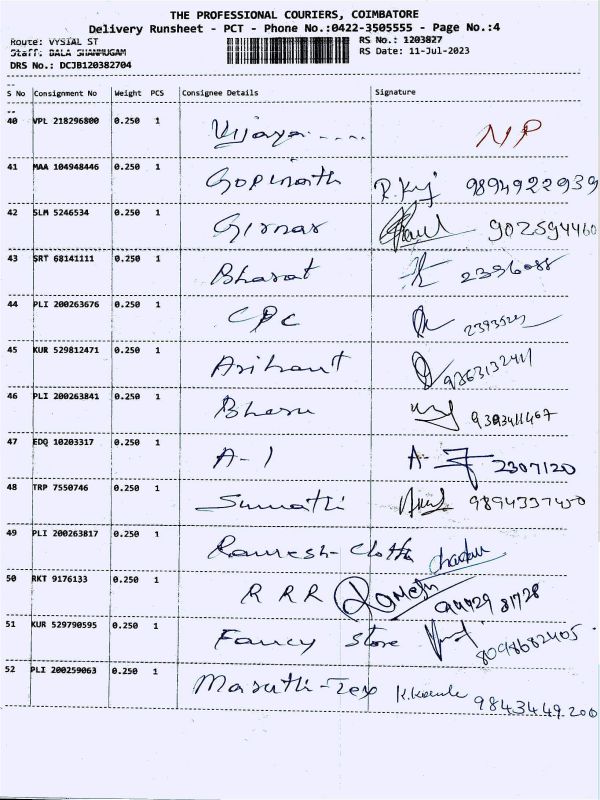 THE PROFESSIONAL COURIERS, COIMBATORE
Delivery Runsheet - PCT - Phone No.:0422-3505555 - Page No.:4
Route: VYSIAL ST RS No.: 1203827
Staff: BALA SHANMUGAM RS Date: 11-Jul-2023
DRS No.: DCJB120382704
S No Consignment No Weight PCS Consignee Details Signature
40 VPL 218296800 0.250 1 Vijaya..... NP
41 MAA 104948446 0.250 1 Gopinath 9894922939
42 SLM 5246534 0.250 1 Girnar 902594460
43 SRT 68141111 0.250 1 Bharat
44 PLI 200263676 0.250 1 CPC
45 KUR 529812471 0.250 1 Arihant
46 PLI 200263841 0.250 1 Bheru
47 EDQ 10203317 0.250 1 A-1 2307120
48 TRP 7550746 0.250 1 Sumathi
49 PLI 200263817 0.250 1 Ramesh-Cloth
50 RKT 9176133 0.250 1 R R R 94429 81728
51 KUR 529790595 0.250 1 Fancy Store 8098682405
52 PLI 200259063 0.250 1 Maruthi-Tex 9843449200